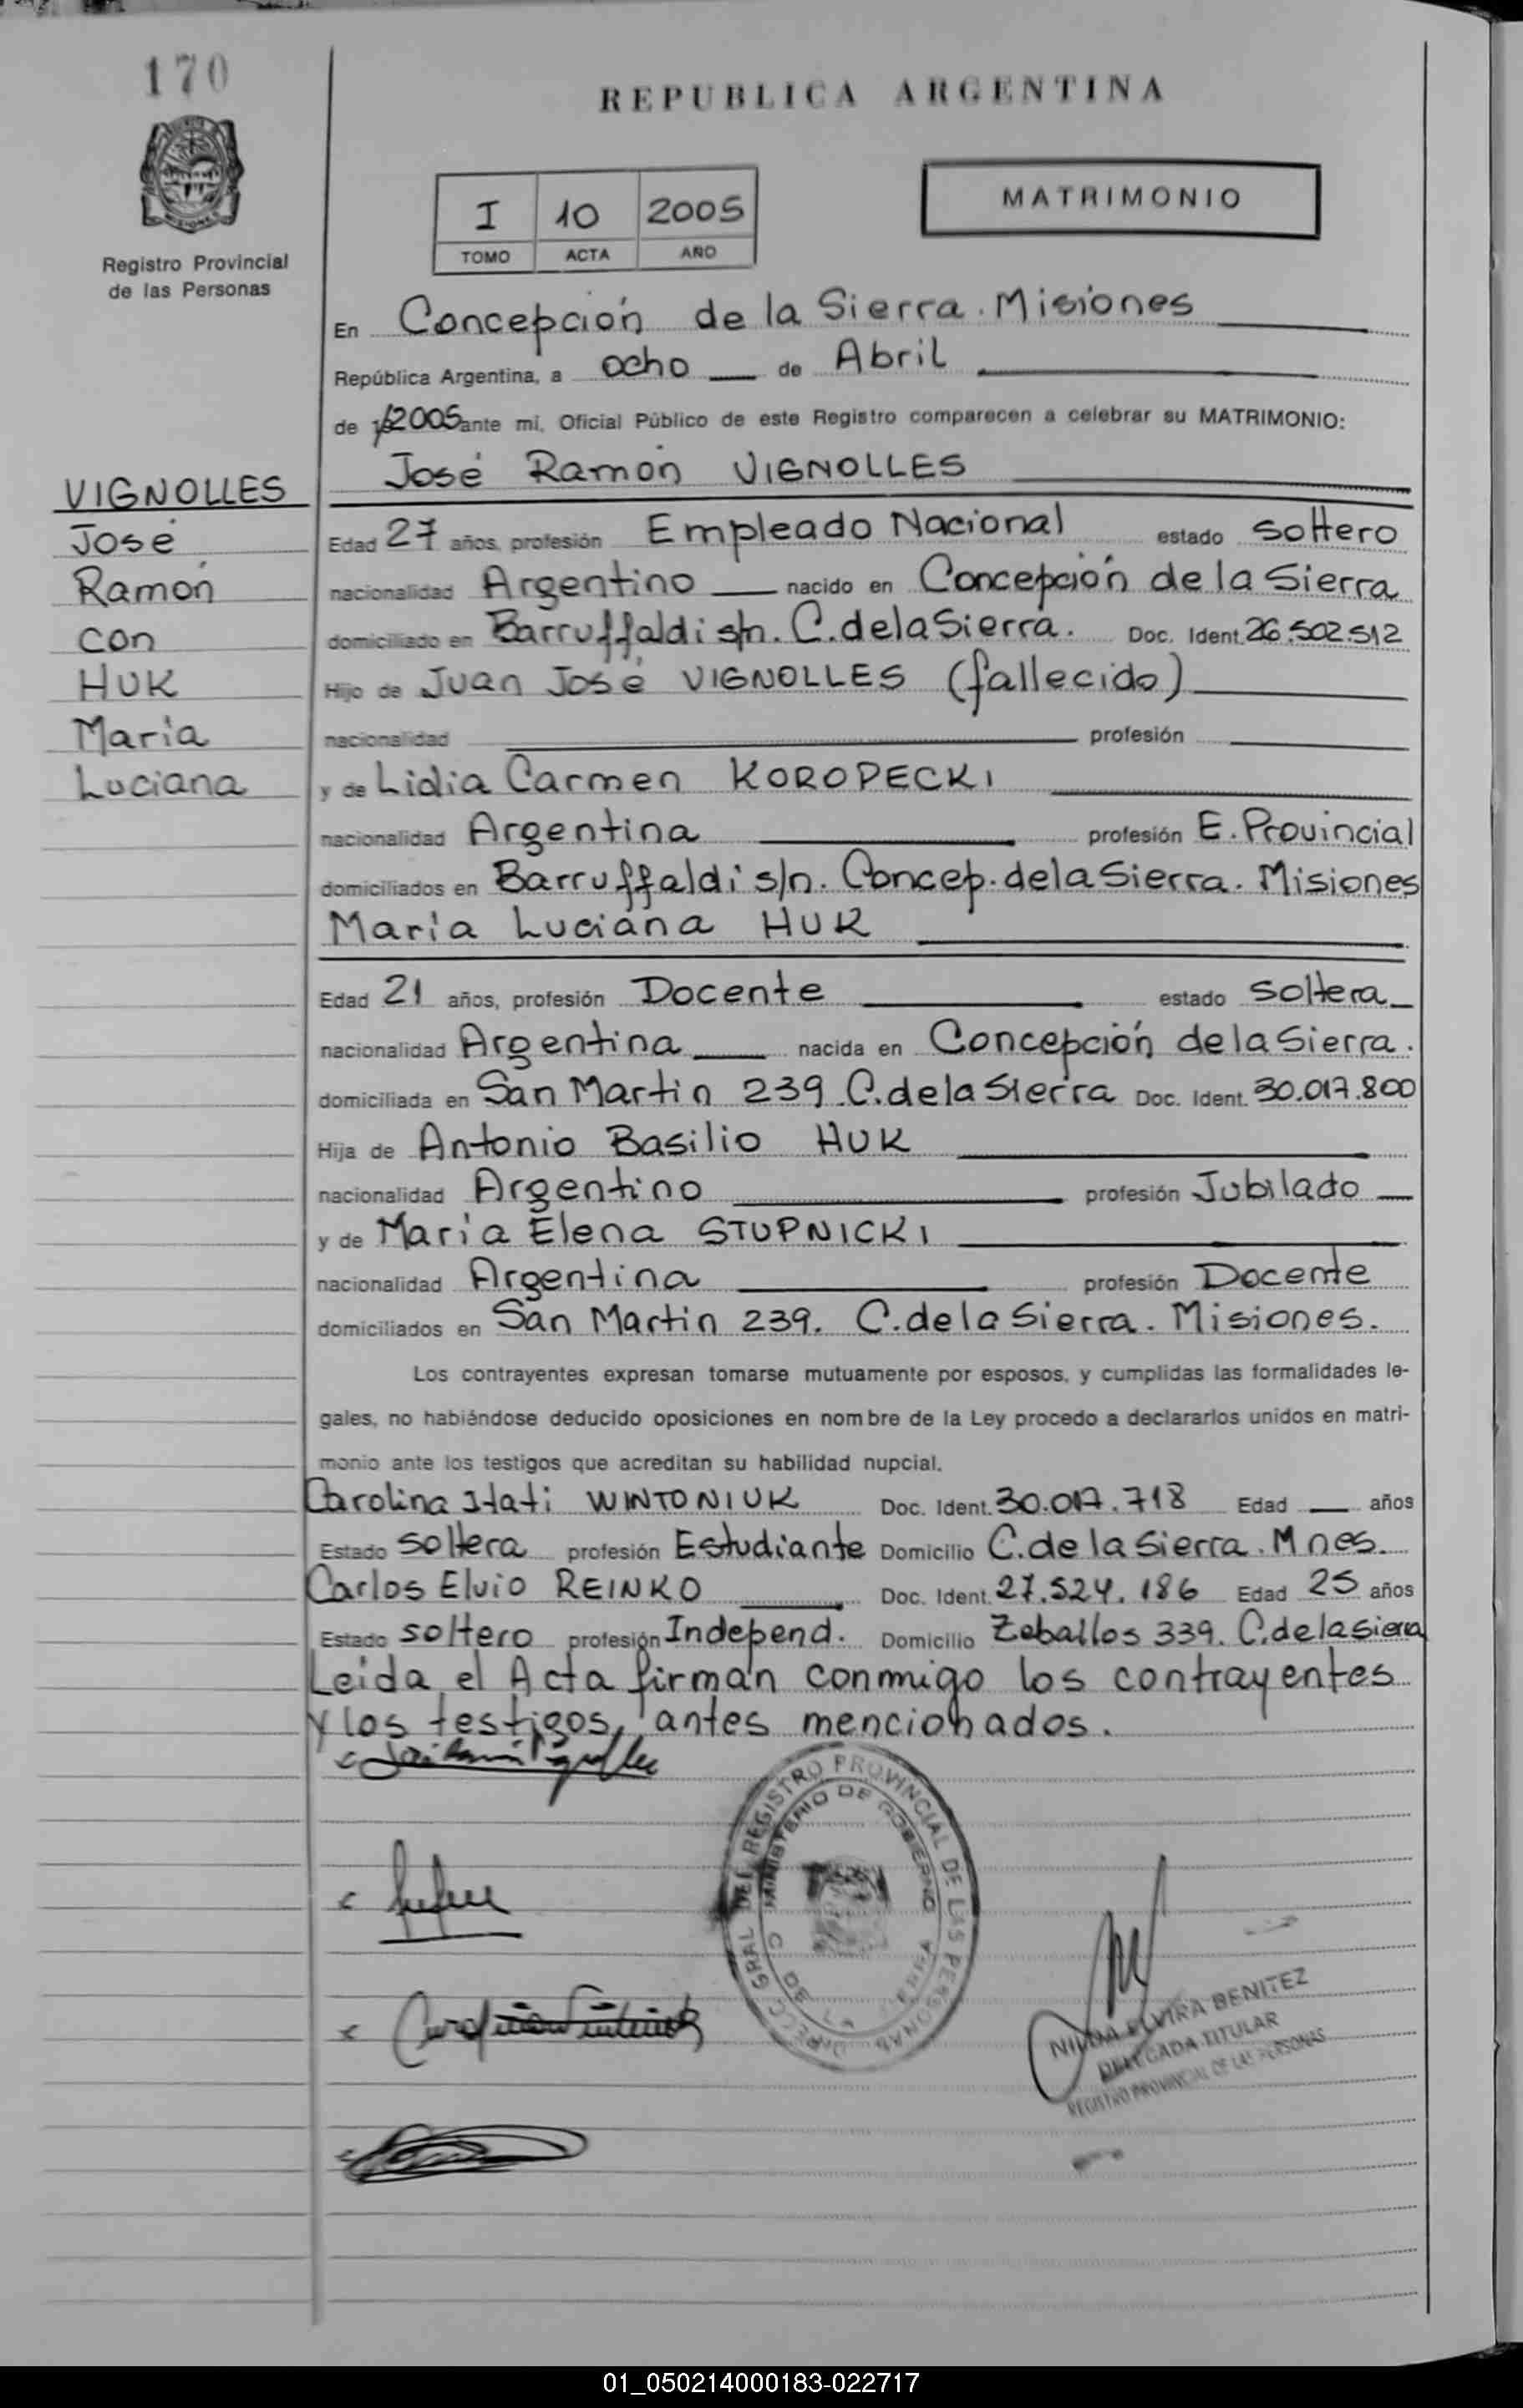 170
REPUBLICA ARGENTINA
I 10 2005
TOMO ACTA AÑO
MATRIMONIO
Registro Provincial
de las Personas
En Concepción de la Sierra. Misiones
República Argentina, a ocho de Abril
de 2005 ante mi, Oficial Público de este Registro comparecen a celebrar su MATRIMONIO:
José Ramón VIGNOLLES
VIGNOLLES
José
Ramón
con
HUK
María
Luciana
Edad 27 años, profesión Empleado Nacional estado soltero
nacionalidad Argentino nacido en Concepción de la Sierra
domiciliado en Barruffaldi s/n. C. de la Sierra. Doc. Ident. 26.502.512
Hijo de Juan José VIGNOLLES (fallecido)
nacionalidad profesión
y de Lidia Carmen KOROPECKI
nacionalidad Argentina profesión E. Provincial
domiciliados en Barruffaldi s/n. Concep. de la Sierra. Misiones
María Luciana HUK
Edad 21 años, profesión Docente estado soltera
nacionalidad Argentina nacida en Concepción de la Sierra.
domiciliada en San Martin 239 C. de la Sierra Doc. Ident. 30.017.800
Hija de Antonio Basilio HUK
nacionalidad Argentino profesión Jubilado
y de María Elena STUPNICKI
nacionalidad Argentina profesión Docente
domiciliados en San Martin 239. C. de la Sierra. Misiones.
Los contrayentes expresan tomarse mutuamente por esposos, y cumplidas las formalidades le-
gales, no habiéndose deducido oposiciones en nombre de la Ley procedo a declararlos unidos en matri-
monio ante los testigos que acreditan su habilidad nupcial.
Carolina Itati WINTONIUK Doc. Ident. 30.017.718 Edad años
Estado soltera profesión Estudiante Domicilio C. de la Sierra. Mnes.
Carlos Elvio REINKO Doc. Ident. 27.524.186 Edad 25 años
Estado soltero profesión Independ. Domicilio Zeballos 339. C. de la Sierra
Leida el Acta firman conmigo los contrayentes
y los testigos, antes mencionados.
DIRECC. GRAL. DEL REGISTRO PROVINCIAL DE LAS PERSONAS
MINISTERIO DE GOBIERNO
ELVIRA BENITEZ
DELEGADA TITULAR
REGISTRO PROVINCIAL DE LAS PERSONAS
01_050214000183-022717